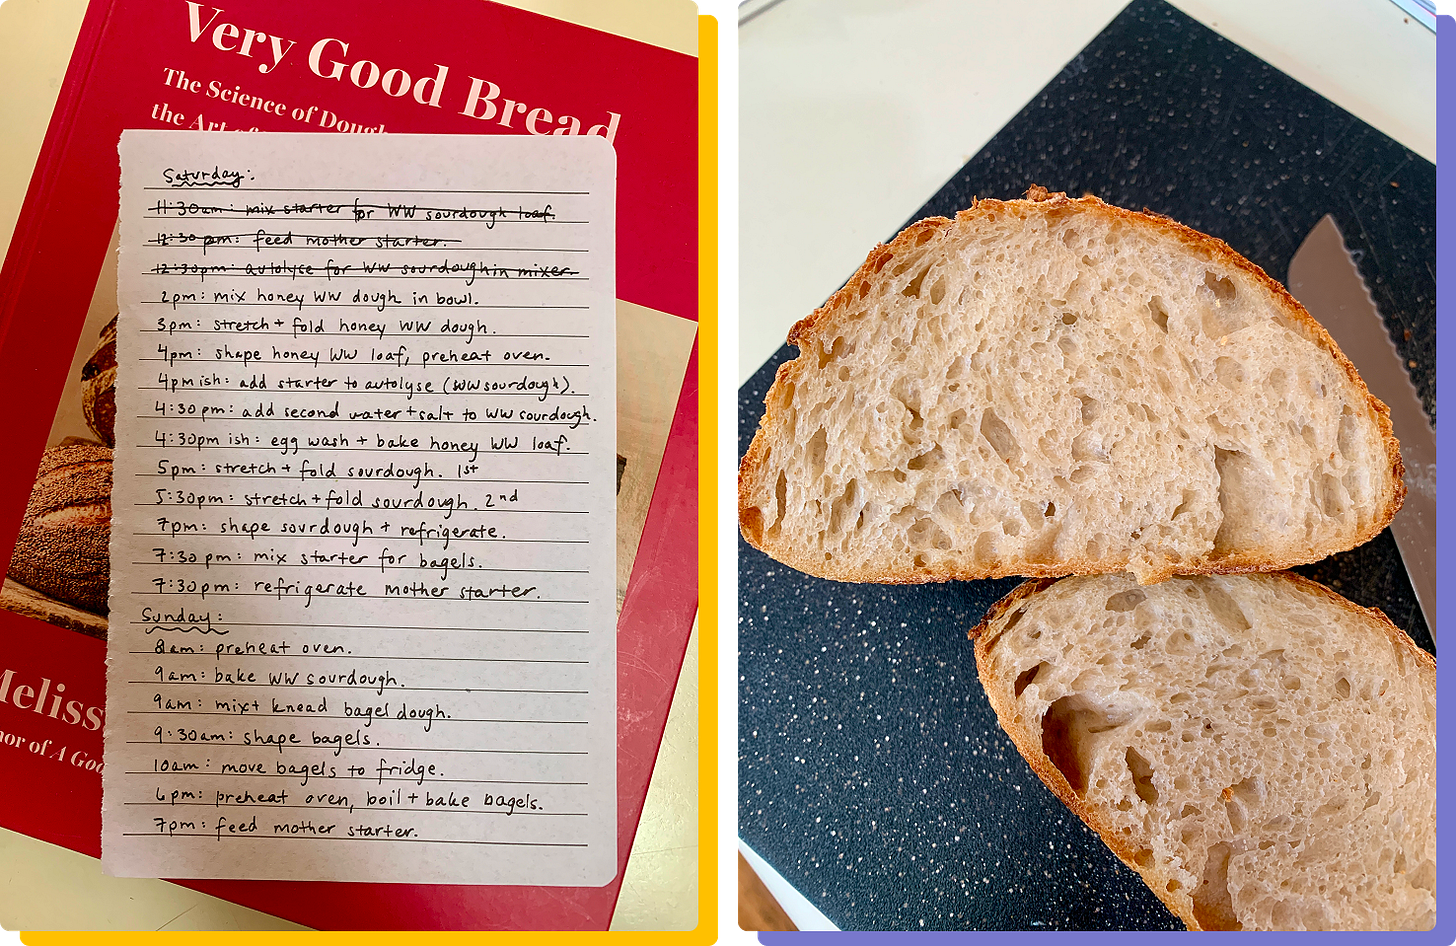 Very Good Bread
The Science of Dough
the Art of
Saturday:
11:30am: mix starter for WW sourdough loaf.
12:30pm: feed mother starter.
12:30pm: autolyse for WW sourdough in mixer.
2pm: mix honey WW dough in bowl.
3pm: stretch + fold honey WW dough.
4pm: shape honey WW loaf, preheat oven.
4pm ish: add starter to autolyse (WW sourdough).
4:30pm: add second water + salt to WW sourdough.
4:30pm ish: egg wash + bake honey WW loaf.
5pm: stretch + fold sourdough. 1st
5:30pm: stretch + fold sourdough. 2nd
7pm: shape sourdough + refrigerate.
7:30pm: mix starter for bagels.
7:30pm: refrigerate mother starter.
Sunday:
8am: preheat oven.
9am: bake WW sourdough.
9am: mix + knead bagel dough.
9:30am: shape bagels.
10am: move bagels to fridge.
6pm: preheat oven, boil + bake bagels.
7pm: feed mother starter.
Meliss
hor of A Good